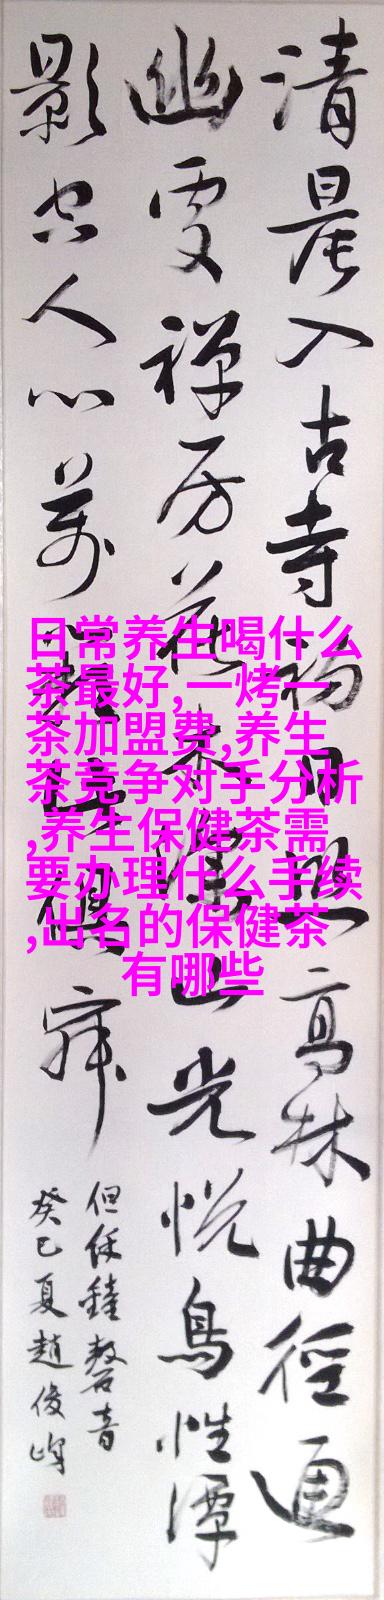 清晨入古寺初日照高林曲徑通
幽處禪房花木深山光悅鳥性潭
影空人心萬籟俱寂
但余鐘磬音
癸巳夏趙俊峰
日常养生喝什么
茶最好,一烤一
茶加盟费,养生
茶竞争对手分析
,养生保健茶需
要办理什么手续
,出名的保健茶
有哪些